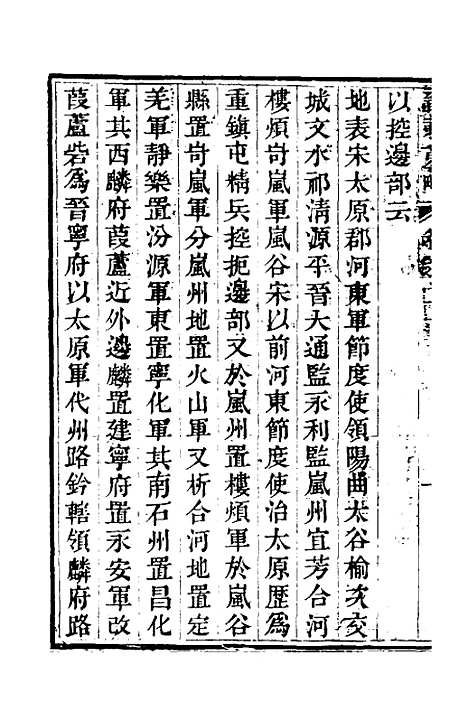 以控邊部云
地表宋太原郡河東軍節度使領陽曲太谷榆次交
城文水祁清源平晉大通監永利監嵐州宜芳合河
樓煩岢嵐軍嵐谷宋以前河東節度使治太原歷爲
重鎮屯精兵控扼邊部又於嵐州置樓煩軍於嵐谷
縣置岢嵐軍分嵐州地置火山軍又析合河地置定
羌軍靜樂置汾源軍東置寧化軍其南石州置昌化
軍其西麟府葭蘆近外邊麟置建寧府置永安軍改
葭蘆砦爲晉寧府以太原軍代州路鈐轄領麟府路